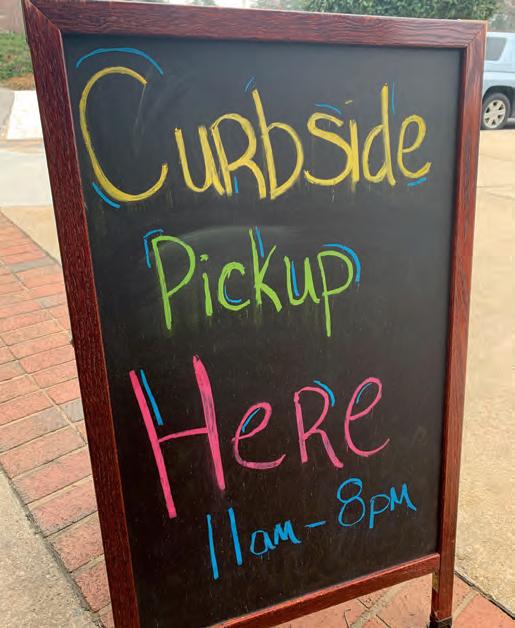 Curbside
Pickup
Here
11am - 8pm